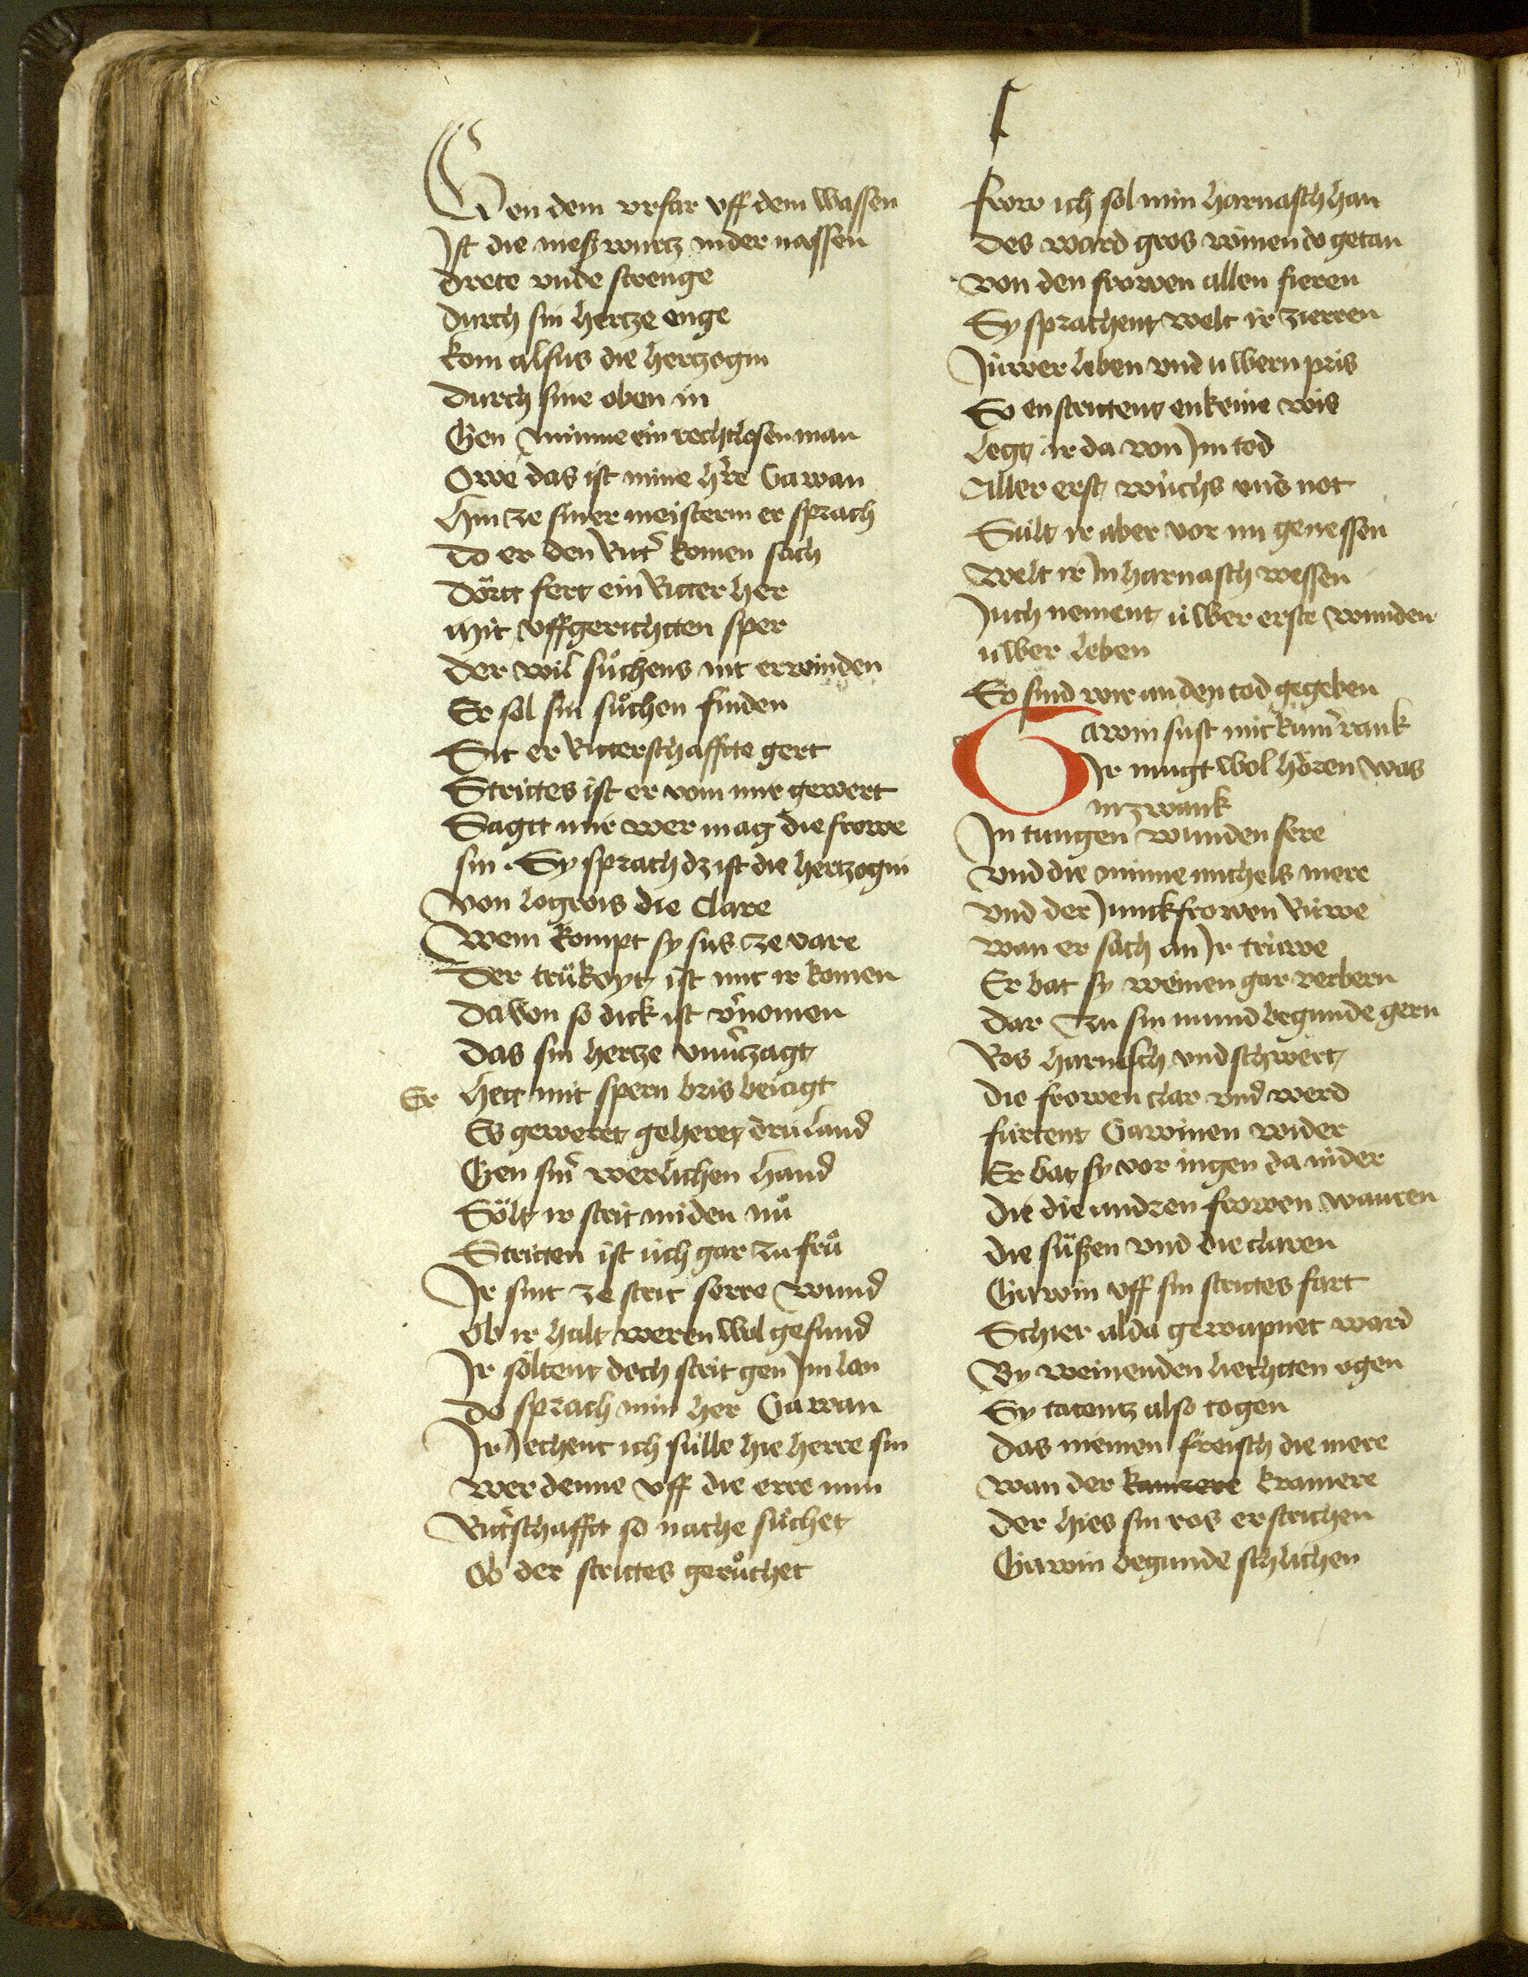 Gen dem vrfar vff dem wassen
Ist die nieß wurtz in der nassen
drete vnde strenge
durch sin hertze enge
kom alsus die hertzogin
durch sine oben in
Gen minne ein rechtlosen man
Owe das ist mine hrͤe Gawan
hin ze siner meisterin er sprach
Do er den Rittʼ komen sach
dortt fert ein Ritter her
mit vffgerichtten sper
der wil suͦchens nit erwinden
Er sol sin suͦchen finden
Sit er Ritterschaffte gert
Strittes ist er vom mir gewert
Sagtt mir wer mag die frowe
sin · Sy sprach dz ist die hertzogin
von logrois die clare
Wem kompt sy sus ze vare
Der trükoyt ist mit ir komen
da von so dick ist vʼnomen
das sin hertze vnuʼzagt
Er hett mit spern bris beiagt
Es geweret geheret dru land
Gen sinʼ werlichen hand
Sölt ir strit miden nuͦ
Stritten ist üch gar zu fruͦ
Ir sint ze strit serre wund
Ob ir halt weren wol gesund
Ir söltent doch strit gen im lon
do sprach min her Gawan
Ir Jechent ich sülle hie herre sin
wer denne vff die erre min
Rittʼschafft so nache suͦchet
Ob der strittes geruͦchet
frow ich sol min harnasch han
des ward gros weinen do getan
von den frowen allen fieren
Sy sprachent welt ir zieren
Jüwer leben vnd uwern pris
So enstritent enkeine wis
legt ir da von Im tod
Aller erst wuchs vnsʼ not
Sült ir aber vor im genessen
Welt ir In harnasch wessen
Juch nement uwer erste wunden
uwer leben
So sind wir an den tod gegeben
Gawin sust mit kumʼ rank
Ir mugt wol hören was
in zwank
In tungen wunden sere
vnd die minne michels mere
vnd der Junckfrowen Rüwe
wan er sach an Ir trüwe
Er bat sy weinen gar verbern
dar zu sin mund begunde gern
Ros harnasch vnd schwert
die frowen clar vnd werd
fürtent Gawinen wider
Er bat sy vor in gen da nider
die die andren frowen waren
die süßen vnd die claren
Gawin vff sin strittes fart
Schier alda gewapnet ward
By weinenden liechtten ogen
Sy tatentz also togen
das niemen freisch die mere
wan der kamrere kramere
der hies sin ros erstrichen
Gawin begunde schlichen